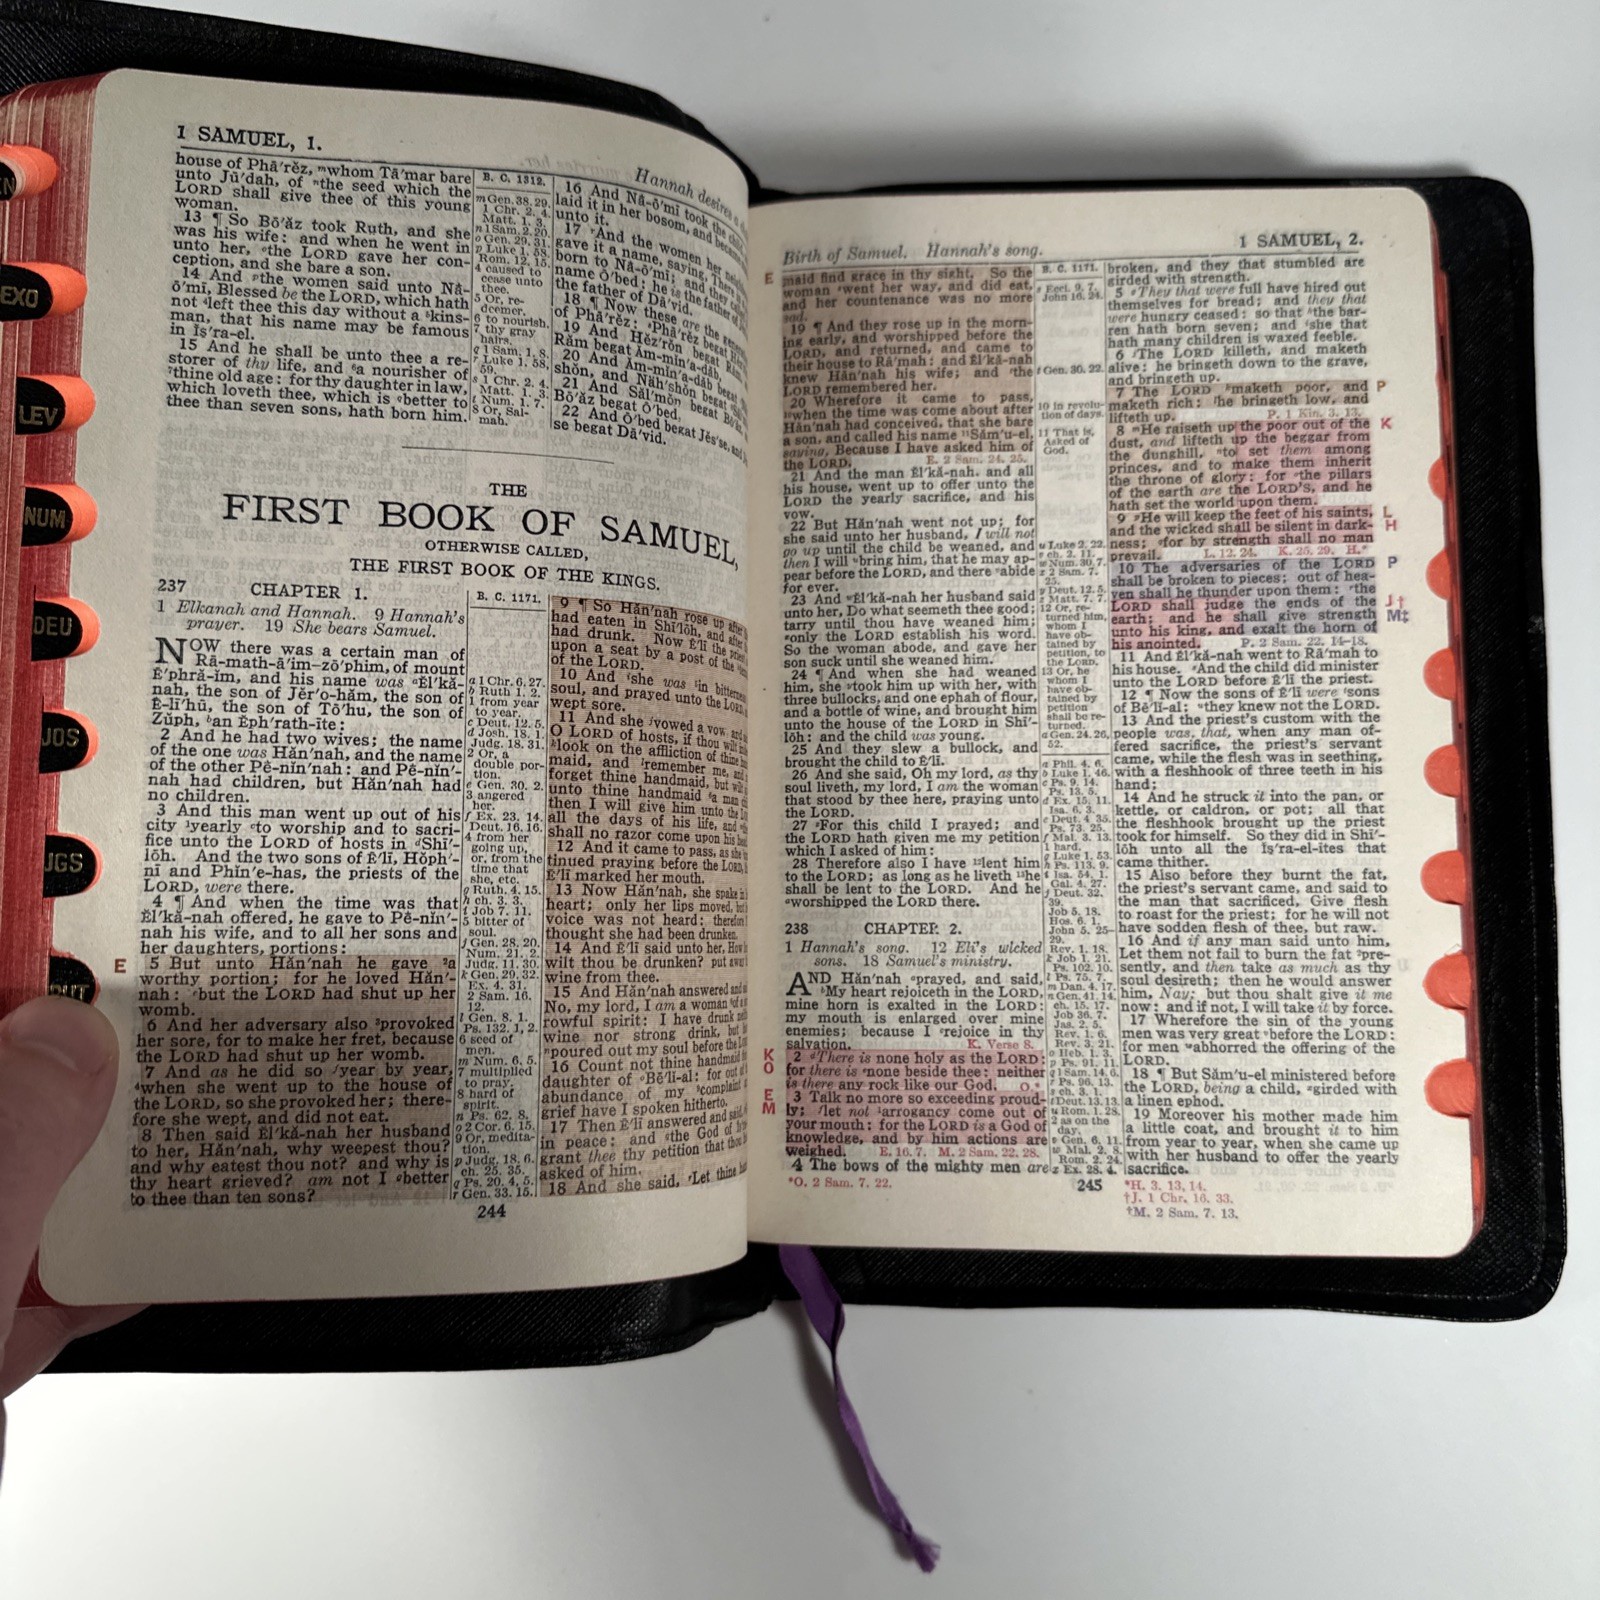 1 SAMUEL, 1.
Hannah desires a
house of Phā′rĕz, ᵐwhom Tā′mar bare
unto Jū′dah, of ⁿthe seed which the
LORD shall give thee of this young
woman.
13 ¶ So Bō′ăz took Ruth, and she
was his wife: and when he went in
unto her, ᵒthe LORD gave her con-
ception, and she bare a son.
14 And ᵖthe women said unto Nā-
ō′mī, Blessed be the LORD, which hath
not ⁴left thee this day without a ⁵kins-
man, that his name may be famous
in Ĭṣ′ra-el.
15 And he shall be unto thee a re-
storer of thy life, and ⁶a nourisher of
⁷thine old age: for thy daughter in law,
which loveth thee, which is ᵠbetter to
thee than seven sons, hath born him.
B. C. 1312.
m Gen. 38. 29.
1 Chr. 2. 4.
Matt. 1. 3.
n 1 Sam. 2. 20.
o Gen. 29. 31.
p Luke 1. 58.
Rom. 12. 15.
4 caused to
cease unto
thee.
5 Or, re-
deemer.
6 to nourish.
7 thy gray
hairs.
q 1 Sam. 1. 8.
r Luke 1. 58,
59.
s 1 Chr. 2. 4.
Matt. 1. 3.
t Num. 1. 7.
8 Or, Sal-
mah.
16 And Nā-ō′mī took the child,
laid it in her bosom, and became
unto it.
17 ʳAnd the women her neighbours
gave it a name, saying, There is
born to Nā-ō′mī; and they called
name Ō′bed: he is the father of
the father of Dā′vid.
18 ¶ Now these are the generations
of Phā′rĕz: ˢPhā′rĕz begat
19 And Hĕz′rŏn begat
Răm begat Ăm-mĭn′a-dăb,
20 And Ăm-mĭn′a-dăb begat
shŏn, and Näh′shŏn begat
21 And Săl′mŏn begat
Bō′ăz begat Ō′bed.
22 And Ō′bed begat Jĕs′se, and
se begat Dā′vid.
THE
FIRST BOOK OF SAMUEL,
OTHERWISE CALLED,
THE FIRST BOOK OF THE KINGS.
237 CHAPTER 1.
1 Elkanah and Hannah. 9 Hannah's
prayer. 19 She bears Samuel.
NOW there was a certain man of
Rā-math-ā′im–zō′phim, of mount
Ē′phrā-ĭm, and his name was ᵃĔl′kă-
nah, the son of Jĕr′o-hăm, the son of
Ē-lī′hū, the son of Tō′hu, the son of
Zŭph, ᵇan Ĕph′rath-īte:
2 And he had two wives; the name
of the one was Hăn′nah, and the name
of the other Pē-nĭn′nah: and Pē-nĭn′-
nah had children, but Hăn′nah had
no children.
3 And this man went up out of his
city ¹yearly ᶜto worship and to sacri-
fice unto the LORD of hosts in ᵈShī′-
lōh. And the two sons of Ē′lī, Hŏph′-
nī and Phĭn′e-has, the priests of the
LORD, were there.
4 ¶ And when the time was that
Ĕl′kă-nah offered, he gave to Pē-nĭn′-
nah his wife, and to all her sons and
her daughters, portions:
E
5 But unto Hăn′nah he gave ²a
worthy portion; for he loved Hăn′-
nah: ᵉbut the LORD had shut up her
womb.
6 And her adversary also ³provoked
her sore, for to make her fret, because
the LORD had shut up her womb.
7 And as he did so ᶠyear by year,
⁴when she went up to the house of
the LORD, so she provoked her; there-
fore she wept, and did not eat.
8 Then said Ĕl′kă-nah her husband
to her, Hăn′nah, why weepest thou?
and why eatest thou not? and why is
thy heart grieved? am not I ᵍbetter
to thee than ten sons?
B. C. 1171.
a 1 Chr. 6. 27.
b Ruth 1. 2.
1 from year
to year.
c Deut. 12. 5.
d Josh. 18. 1.
Judg. 18. 31.
2 Or, a
double por-
tion.
e Gen. 30. 2.
3 angered
her.
f Ex. 23. 14.
Deut. 16. 16.
4 from her
going up,
or, from the
time that
she, etc.
g Ruth. 4. 15.
h ch. 3. 3.
i Job 7. 11.
5 bitter of
soul.
j Gen. 28. 20.
Num. 21. 2.
Judg. 11. 30.
k Gen. 29. 32.
Ex. 4. 31.
2 Sam. 16.
12.
l Gen. 8. 1.
Ps. 132. 1, 2.
6 seed of
men.
m Num. 6. 5.
7 multiplied
to pray.
8 hard of
spirit.
n Ps. 62. 8.
o 2 Cor. 6. 15.
9 Or, medita-
tion.
p Judg. 18. 6.
ch. 25. 35.
q Ps. 20. 4, 5.
r Gen. 33. 15.
9 ¶ So Hăn′nah rose up after
had eaten in Shī′lōh, and after
had drunk. Now Ē′lī the priest
upon a seat by a post of the
of the LORD.
10 And ⁱshe was ⁵in bitterness
soul, and prayed unto the LORD,
wept sore.
11 And she ʲvowed a vow, and
O LORD of hosts, if thou wilt
ᵏlook on the affliction of thine
maid, and ˡremember me, and
forget thine handmaid, but wilt
unto thine handmaid ⁶a man
then I will give him unto the
all the days of his life, and
shall no razor come upon his
12 And it came to pass, as she
tinued praying before the LORD,
Ē′lī marked her mouth.
13 Now Hăn′nah, she spake in
heart; only her lips moved, but
voice was not heard: therefore
thought she had been drunken.
14 And Ē′lī said unto her, How
wilt thou be drunken? put away
wine from thee.
15 And Hăn′nah answered and
No, my lord, I am a woman ⁸of a
rowful spirit: I have drunk
wine nor strong drink, but
ⁿpoured out my soul before the
16 Count not thine handmaid
daughter of ᵒBē′lĭ-al: for out of
abundance of my ⁹complaint
grief have I spoken hitherto.
17 Then Ē′lī answered and said,
in peace: and ᵠthe God of
grant thee thy petition that thou
asked of him.
18 And she said, ʳLet thine
244
EXO
LEV
NUM
DEU
JOS
JGS
RUT
Birth of Samuel. Hannah's song.
1 SAMUEL, 2.
E
maid find grace in thy sight. So the
woman ˢwent her way, and did eat,
and her countenance was no more
sad.
19 ¶ And they rose up in the morn-
ing early, and worshipped before the
LORD, and returned, and came to
their house to Rā′mah: and Ĕl′kă-nah
knew Hăn′nah his wife; and ᵗthe
LORD remembered her.
20 Wherefore it came to pass,
¹⁰when the time was come about after
Hăn′nah had conceived, that she bare
a son, and called his name ¹¹Săm′u-el,
saying, Because I have asked him of
the LORD. E. 2 Sam. 24. 25.
21 And the man Ĕl′kă-nah, and all
his house, went up to offer unto the
LORD the yearly sacrifice, and his
vow.
22 But Hăn′nah went not up; for
she said unto her husband, I will not
go up until the child be weaned, and
then I will ᵘbring him, that he may ap-
pear before the LORD, and there ᵛabide
for ever.
23 And ʷĔl′kă-nah her husband said
unto her, Do what seemeth thee good;
tarry until thou have weaned him;
ˣonly the LORD establish his word.
So the woman abode, and gave her
son suck until she weaned him.
24 ¶ And when she had weaned
him, she ʸtook him up with her, with
three bullocks, and one ephah of flour,
and a bottle of wine, and brought him
unto the house of the LORD in Shī′-
lōh: and the child was young.
25 And they slew a bullock, and
brought the child to Ē′lī.
26 And she said, Oh my lord, as thy
soul liveth, my lord, I am the woman
that stood by thee here, praying unto
the LORD.
27 ᶻFor this child I prayed; and
the LORD hath given me my petition
which I asked of him:
28 Therefore also I have ¹²lent him
to the LORD; as long as he liveth ¹³he
shall be lent to the LORD. And he
ᵃworshipped the LORD there.
238 CHAPTER 2.
1 Hannah's song. 12 Eli's wicked
sons. 18 Samuel's ministry.
AND Hăn′nah ᵃprayed, and said,
ᵇMy heart rejoiceth in the LORD,
mine horn is exalted in the LORD:
my mouth is enlarged over mine
enemies; because I ᶜrejoice in thy
salvation. K. Verse 8.
K
O
2 ᵈThere is none holy as the LORD:
for there is ᵉnone beside thee: neither
is there any rock like our God. O.*
E
M
3 Talk no more so exceeding proud-
ly; ᶠlet not ¹arrogancy come out of
your mouth: for the LORD is a God of
knowledge, and by him actions are
weighed. E. 16. 7. M. 2 Sam. 22. 28.
4 The bows of the mighty men are
*O. 2 Sam. 7. 22.
B. C. 1171.
s Eccl. 9. 7.
John 16. 24.
t Gen. 30. 22.
10 in revolu-
tion of days.
11 That is,
Asked of
God.
u Luke 2. 22.
v ch. 2. 11.
w Num. 30. 7.
x 2 Sam. 7.
25.
y Deut. 12. 5.
z Matt. 7. 7.
12 Or, re-
turned him,
whom I
have ob-
tained by
petition, to
the LORD.
13 Or, he
whom I
have ob-
tained by
petition
shall be re-
turned.
a Gen. 24. 26,
52.
a Phil. 4. 6.
b Luke 1. 46.
c Ps. 9. 14.
Ps. 13. 5.
d Ex. 15. 11.
Isa. 6. 3.
e Deut. 4. 35.
Ps. 73. 25.
f Mal. 3. 13.
1 hard.
g Luke 1. 53.
h Ps. 113. 9.
i Isa. 54. 1.
Gal. 4. 27.
j Deut. 32.
39.
Job 5. 18.
Hos. 6. 1.
John 5. 25-
29.
Rev. 1. 18.
k Job 1. 21.
Ps. 102. 10.
l Ps. 75. 7.
m Dan. 4. 17.
n Gen. 41. 14.
ch. 15. 17.
Job 36. 7.
Jas. 2. 5.
Rev. 1. 6.
Rev. 3. 21.
o Heb. 1. 3.
p Ps. 91. 11.
q 1 Sam. 14. 6.
r Ps. 96. 13.
s ch. 3. 1.
t Deut. 13. 13.
u Rom. 1. 28.
2 as on the
day.
v Gen. 6. 11.
w Mal. 2. 8.
Rom. 2. 24.
x Ex. 28. 4.
broken, and they that stumbled are
girded with strength.
5 ᵍThey that were full have hired out
themselves for bread; and they that
were hungry ceased: so that ʰthe bar-
ren hath born seven; and ⁱshe that
hath many children is waxed feeble.
6 ʲThe LORD killeth, and maketh
alive: he bringeth down to the grave,
and bringeth up.
P
7 The LORD ᵏmaketh poor, and
maketh rich: ˡhe bringeth low, and
lifteth up. P. 1 Kin. 3. 13.
K
8 ᵐHe raiseth up the poor out of the
dust, and lifteth up the beggar from
the dunghill, ⁿto set them among
princes, and to make them inherit
the throne of glory: for ᵒthe pillars
of the earth are the LORD'S, and he
hath set the world upon them.
L
H
9 ᵖHe will keep the feet of his saints,
and the wicked shall be silent in dark-
ness; ᵠfor by strength shall no man
prevail. L. 12. 24. K. 25. 29. H.*
P
10 The adversaries of the LORD
shall be broken to pieces; out of hea-
ven shall he thunder upon them: ʳthe
J†
M‡
LORD shall judge the ends of the
earth; and he shall give strength
unto his king, and exalt the horn of
his anointed. P. 2 Sam. 22. 14-18.
11 And Ĕl′kă-nah went to Rā′mah to
his house. ˢAnd the child did minister
unto the LORD before Ē′lī the priest.
12 ¶ Now the sons of Ē′lī were ᵗsons
of Bē′lĭ-al; ᵘthey knew not the LORD.
13 And the priest's custom with the
people was, that, when any man of-
fered sacrifice, the priest's servant
came, while the flesh was in seething,
with a fleshhook of three teeth in his
hand;
14 And he struck it into the pan, or
kettle, or caldron, or pot; all that
the fleshhook brought up the priest
took for himself. So they did in Shī′-
lōh unto all the Ĭṣ′ra-el-ītes that
came thither.
15 Also before they burnt the fat,
the priest's servant came, and said to
the man that sacrificed, Give flesh
to roast for the priest; for he will not
have sodden flesh of thee, but raw.
16 And if any man said unto him,
Let them not fail to burn the fat ²pre-
sently, and then take as much as thy
soul desireth; then he would answer
him, Nay; but thou shalt give it me
now: and if not, I will take it by force.
17 Wherefore the sin of the young
men was very great ᵛbefore the LORD:
for men ʷabhorred the offering of the
LORD.
18 ¶ But Săm′u-el ministered before
the LORD, being a child, ˣgirded with
a linen ephod.
19 Moreover his mother made him
a little coat, and brought it to him
from year to year, when she came up
with her husband to offer the yearly
sacrifice.
245
*H. 3. 13, 14.
†J. 1 Chr. 16. 33.
‡M. 2 Sam. 7. 13.